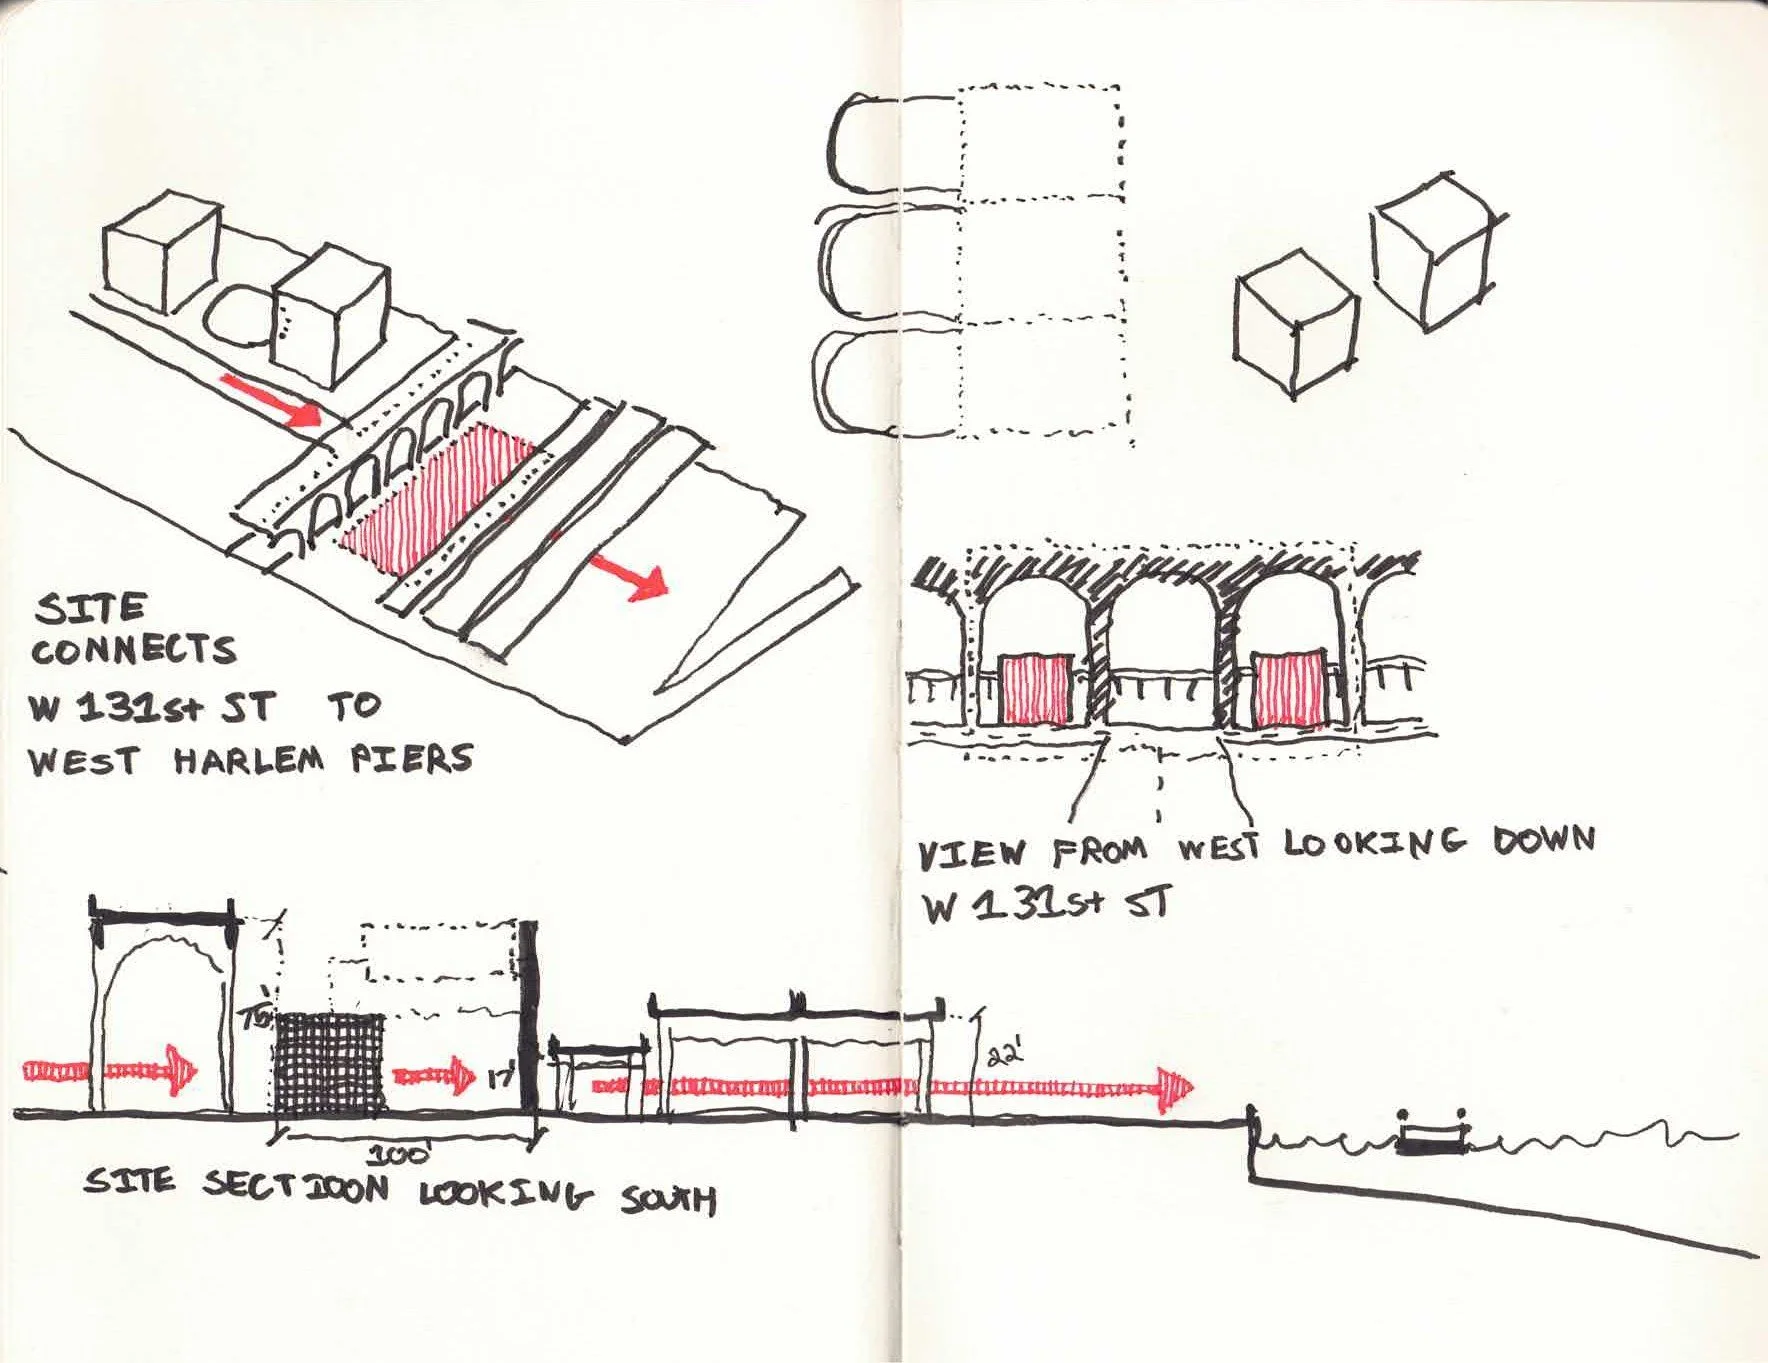 SITE
CONNECTS
W 131st ST TO
WEST HARLEM PIERS
VIEW FROM WEST LOOKING DOWN
W 131st ST
75'
17'
22'
100'
SITE SECTIOON LOOKING SOUTH